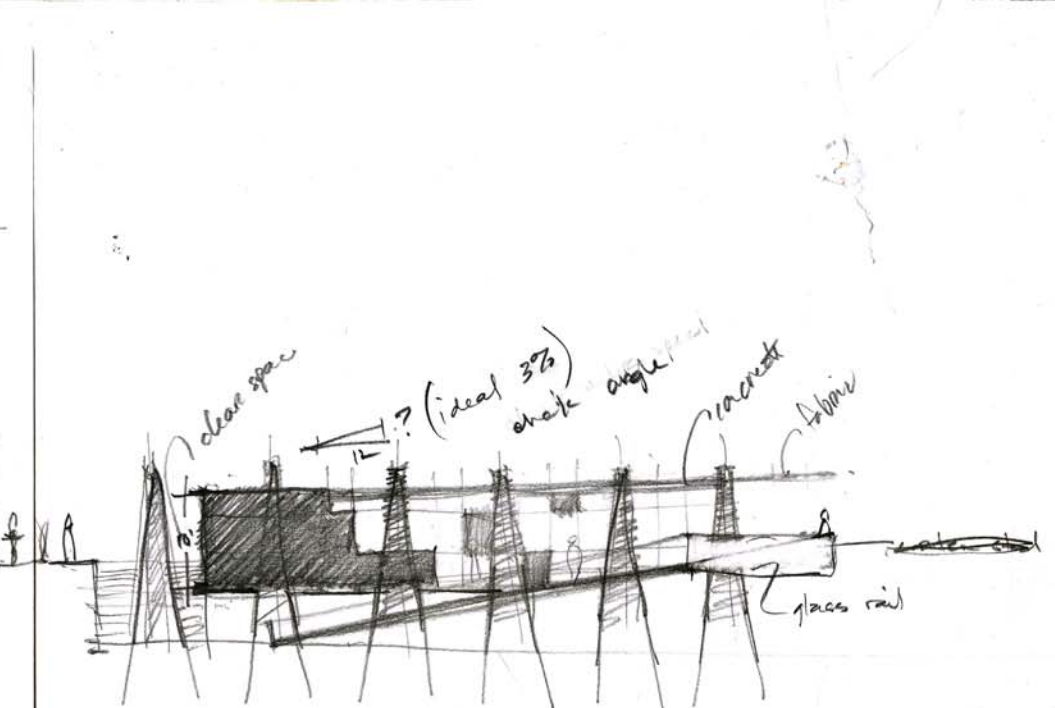 clear space
? (ideal 3%)
12
angle
concrete
fabric
glass rail